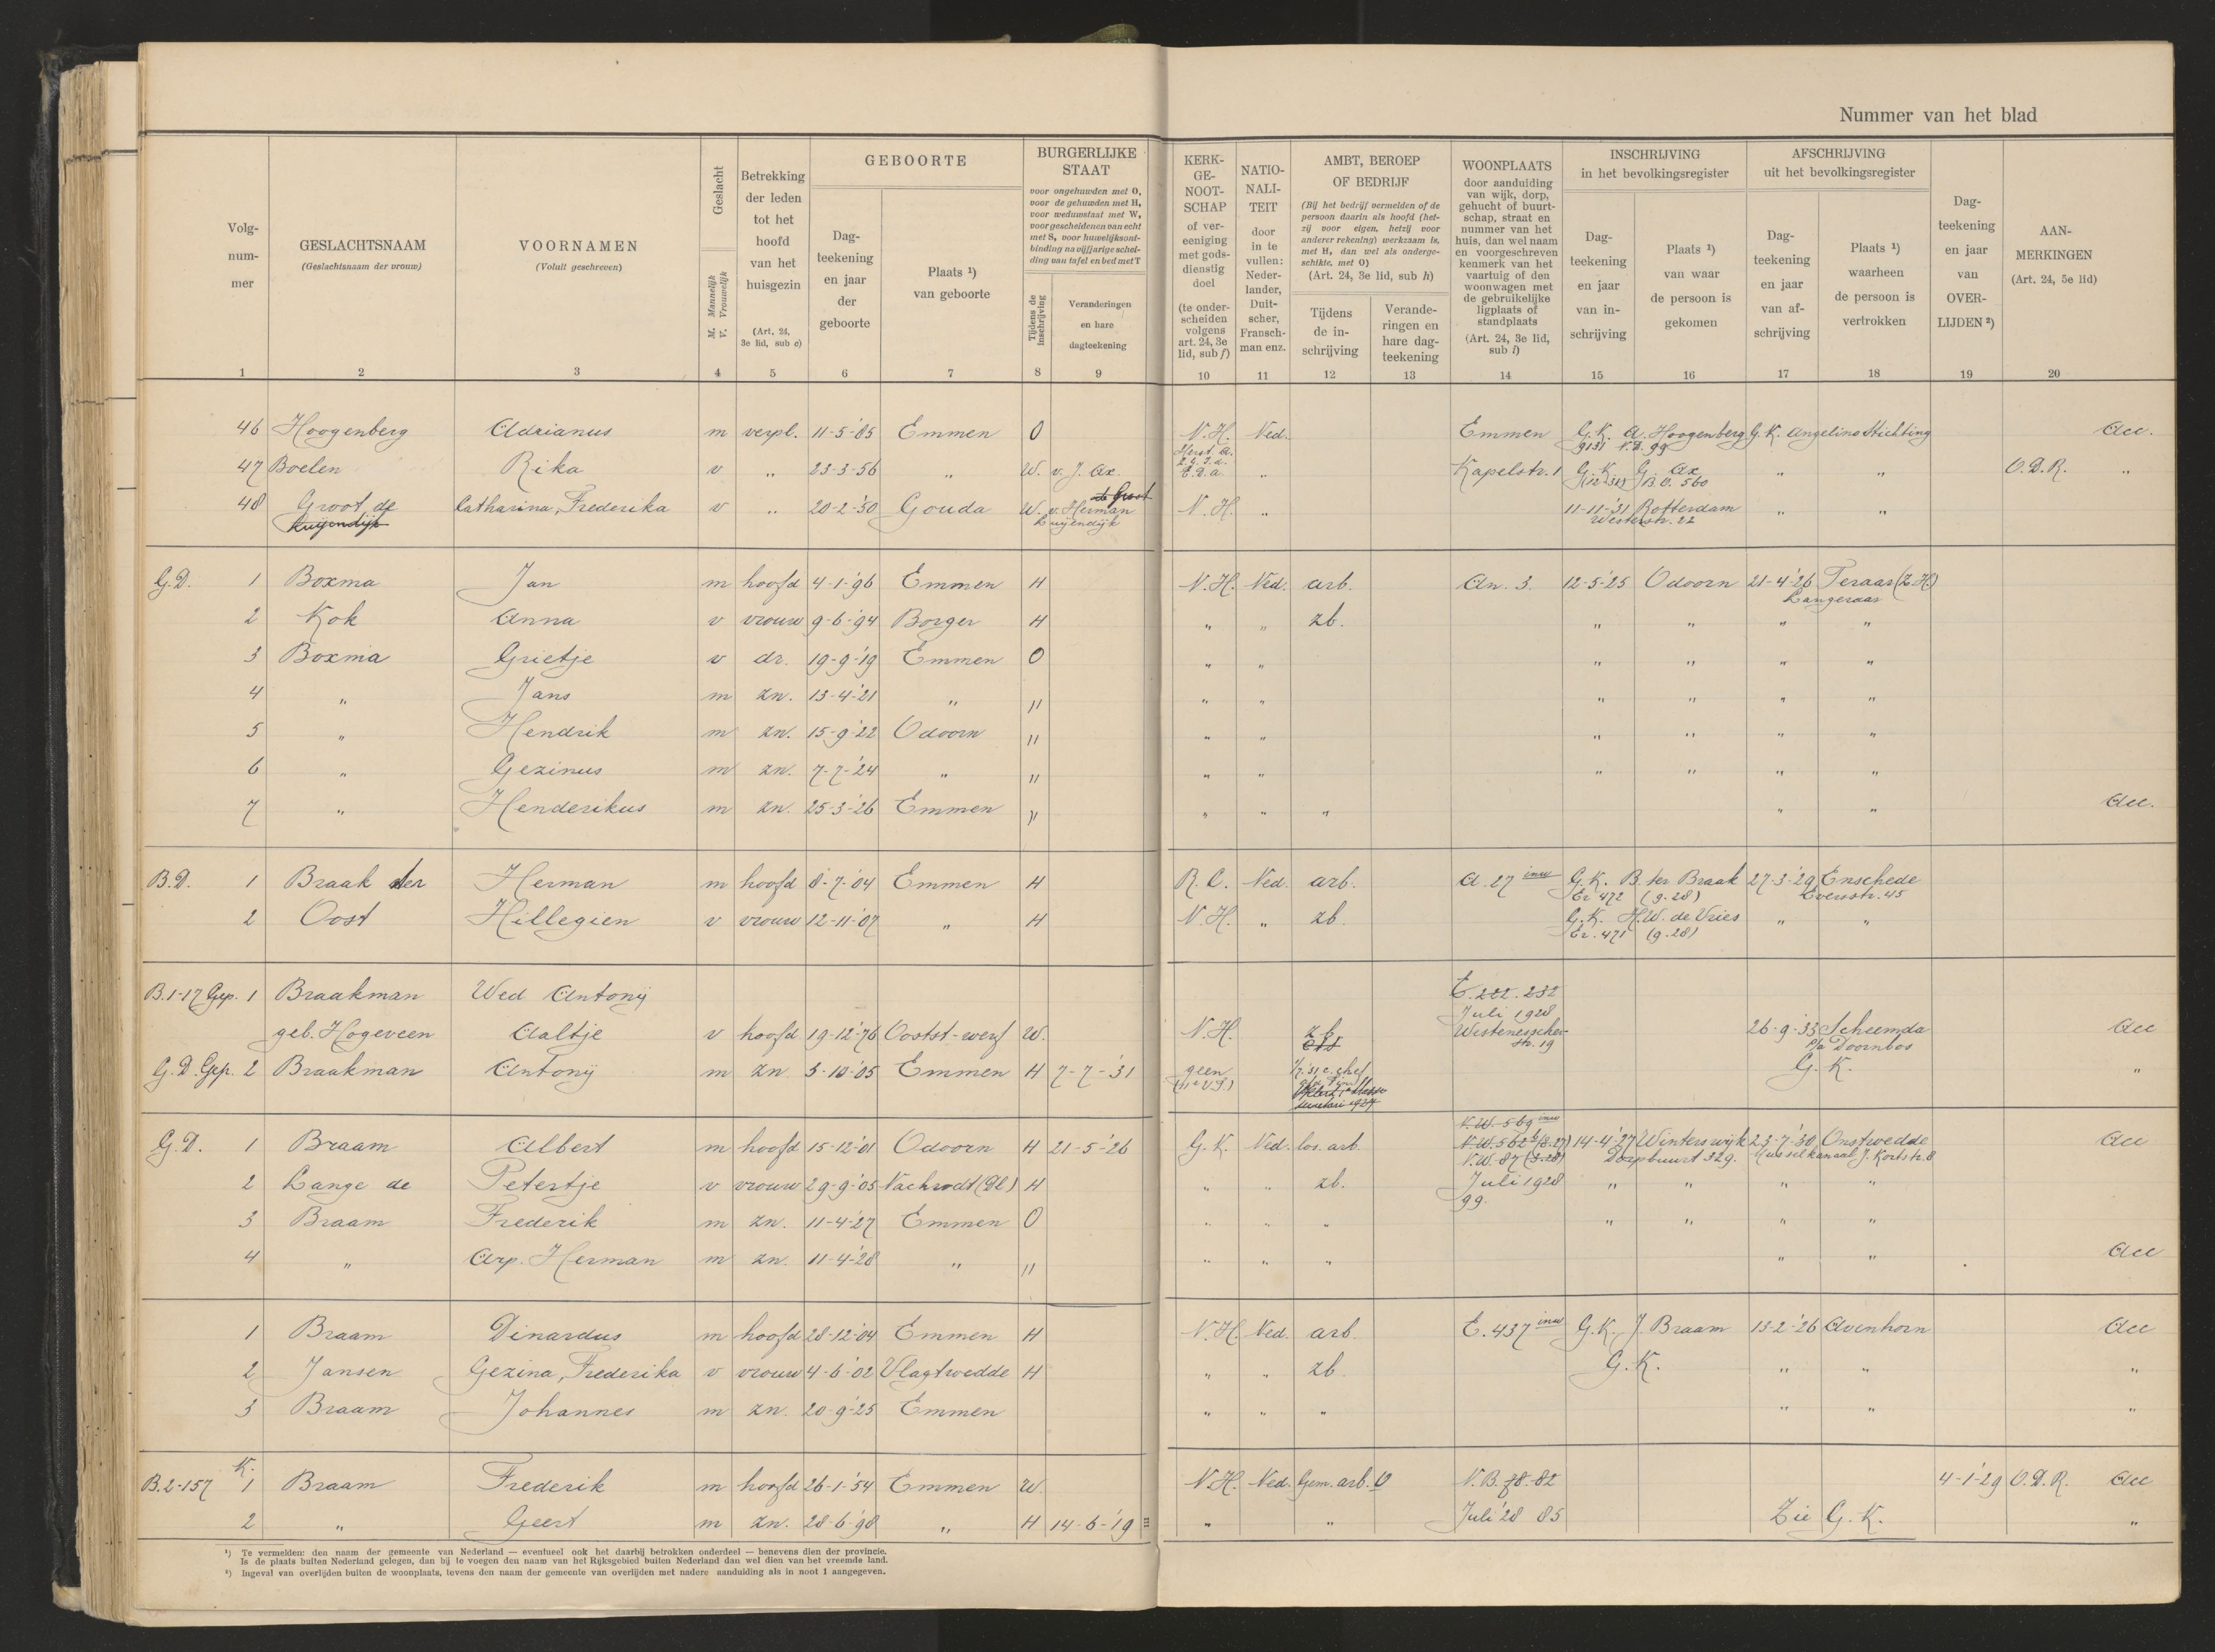 Nummer van het blad
Volg-
num-
mer
GESLACHTSNAAM
(Geslachtsnaam der vrouw)
VOORNAMEN
(Voluit geschreven)
Geslacht
M. Mannelijk
V. Vrouwelijk
Betrekking
der leden
tot het
hoofd
van het
huisgezin
(Art. 24,
3e lid, sub c)
GEBOORTE
Dag-
teekening
en jaar
der
geboorte
Plaats ¹)
van geboorte
BURGERLIJKE
STAAT
voor ongehuwden met O,
voor de gehuwden met H,
voor weduwstaat met W,
voor gescheidenen van echt
met S, voor huwelijksont-
binding na vijfjarige schei-
ding van tafel en bed met T
Tijdens de
inschrijving
Veranderingen
en hare
dagteekening
KERK-
GE-
NOOT-
SCHAP
of ver-
eeniging
met gods-
dienstig
doel
(te onder-
scheiden
volgens
art. 24, 3e
lid, sub f)
NATIO-
NALI-
TEIT
door
in te
vullen:
Neder-
lander,
Duit-
scher,
Fransch-
man enz.
AMBT, BEROEP
OF BEDRIJF
(Bij het bedrijf vermelden of de
persoon daarin als hoofd (het-
zij voor eigen, hetzij voor
anderer rekening) werkzaam is,
met H, dan wel als onderge-
schikte, met O)
(Art. 24, 3e lid, sub h)
Tijdens
de in-
schrijving
Verande-
ringen en
hare dag-
teekening
WOONPLAATS
door aanduiding
van wijk, dorp,
gehucht of buurt-
schap, straat en
nummer van het
huis, dan wel naam
en voorgeschreven
kenmerk van het
vaartuig of den
woonwagen met
de gebruikelijke
ligplaats of
standplaats
(Art. 24, 3e lid,
sub i)
INSCHRIJVING
in het bevolkingsregister
Dag-
teekening
en jaar
van in-
schrijving
Plaats ¹)
van waar
de persoon is
gekomen
AFSCHRIJVING
uit het bevolkingsregister
Dag-
teekening
en jaar
van af-
schrijving
Plaats ¹)
waarheen
de persoon is
vertrokken
Dag-
teekening
en jaar
van
OVER-
LIJDEN ²)
AAN-
MERKINGEN
(Art. 24, 5e lid)
1 2 3 4 5 6 7 8 9 10 11 12 13 14 15 16 17 18 19 20
46 Hoogenberg Adrianus m verpl. 11-5-'85 Emmen O N.H. Ned. Emmen G.K. A. Hoogenberg G.K. Angelino Stichting Acc.
9131 N.D. 99
47 Boelen Rika v " 23-3-'56 " W. v. J. Ax. " Kapelstr. 1 G.K. G. Ax " " O.D.R. "
B.O. 560
48 Groot de Catharina, Frederika v " 20-2-'50 Gouda W. v. Herman N.H. " 11-11-'31 Rotterdam " "
Luijendijk de Groot Luijendijk Westerstr. 22
G.D. 1 Boxma Jan m hoofd 4-1-'96 Emmen H N.H. Ned. arb. An. 3. 12-5-'25 Odoorn 21-4-'26 Teraar (Z.H.)
Langeraar
2 Kok Anna v vrouw 9-6-'94 Borger H " " zb. " " " "
3 Boxma Grietje v dr. 19-9-'19 Emmen O " " " " " "
4 " Jans m zn. 13-4-'21 " " " " " " " "
5 " Hendrik m zn. 15-9-'22 Odoorn " " " " " " "
6 " Gezinus m zn. 7-7-'24 " " " " " " " "
7 " Henderikus m zn. 25-3-'26 Emmen " " " " " " Acc.
B.D. 1 Braak ter Herman m hoofd 8-7-'04 Emmen H R.C. Ned. arb. A. 27 inw G.K. B. ter Braak 27-3-'29 Enschede
Er 472 (9.28) Eversstr. 45
2 Oost Hillegien v vrouw 12-11-'07 " H N.H. " zb. G.K. H.W. de Vries " "
Er. 471 (9.28)
B.1-17 Gep. 1 Braakman Wed Antonij E. 222. 232
Juli 1928
geb. Hogeveen Aaltje v hoofd 19-12-'76 Ooststwerf W. N.H. zb Westenesscher- 26-9-'33 Scheemda Acc
str. 19 p/a Doornbos
G.D. Gep. 2 Braakman Antonij m zn 3-10-'05 Emmen H 7-7-'31 geen G.K. "
N.W. 569 inw
G.D. 1 Braam Albert m hoofd 15-12-'01 Odoorn H 21-5-'26 G.K. Ned. los. arb. N.W. 562 14-4-'27 Winterswijk 23-7-'30 Onstwedde Acc
N.W. 87 (3-28) Dorpbuurt 329. Musselkanaal J. Kortstr. 8
2 Lange de Petertje v vrouw 29-9-'05 Nachrodt (Dl) H " " zb. Juli 1928 " " " "
99.
3 Braam Frederik m zn. 11-4-'27 Emmen O " " " " " " "
4 " Arp. Herman m zn. 11-4-'28 " " " " " " " Acc
1 Braam Dinardus m hoofd 28-12-'04 Emmen H N.H. Ned. arb. E. 437 inw G.K. J. Braam 13-2-'26 Avenhorn Acc
2 Jansen Gezina, Frederika v vrouw 4-6-'02 Vlagtwedde H " " zb. G.K. " " "
3 Braam Johannes m zn. 20-9-'25 Emmen " " " " " "
K.
B.2-157 1 Braam Frederik m hoofd 26-1-'54 Emmen W. N.H. Ned. Gem. arb. O N.B. 78. 82 4-1-'29 O.D.R. Acc
2 " Geert m zn. 28-6-'98 " H 14-6-'19 " " Juli '28 85 Zie G.K. "
¹) Te vermelden: den naam der gemeente van Nederland — eventueel ook het daarbij betrokken onderdeel — benevens dien der provincie.
Is de plaats buiten Nederland gelegen, dan bij te voegen den naam van het Rijksgebied buiten Nederland dan wel dien van het vreemde land.
²) Ingeval van overlijden buiten de woonplaats, tevens den naam der gemeente van overlijden met nadere aanduiding als in noot 1 aangegeven.